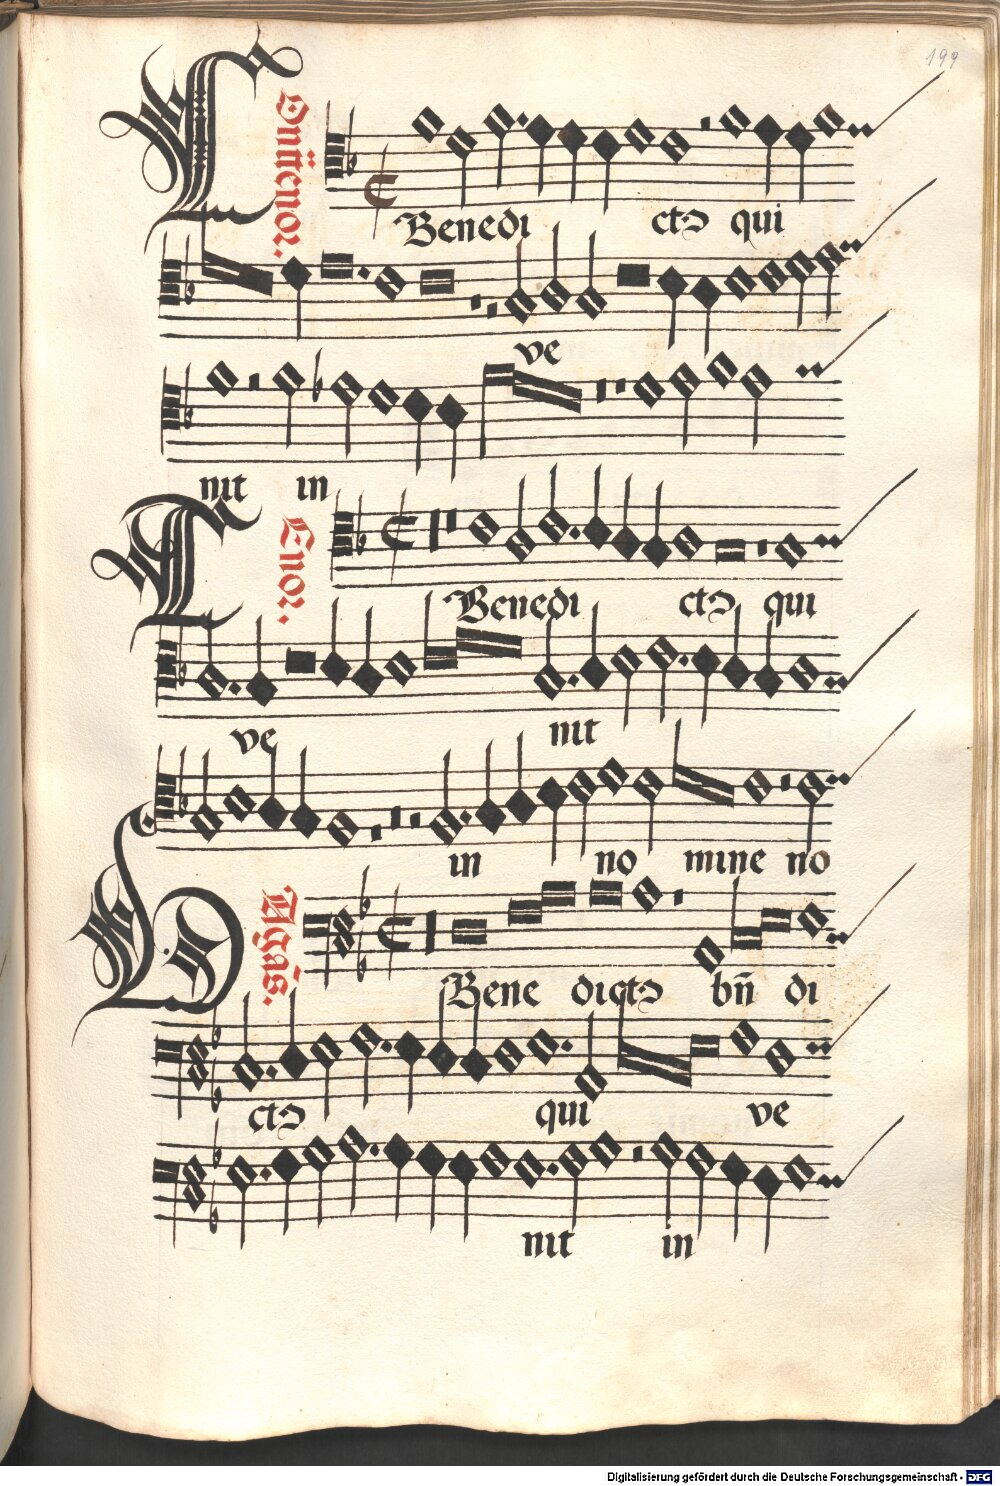 199
Cōntᵉnor.
Benedi ctꝰ qui
ve
nit in
Tenor.
Benedi ctꝰ qui
ve nit
in no mine no
Bagās.
Bene dictꝰ bn̄ di
ctꝰ qui ve
nit in
Digitalisierung gefördert durch die Deutsche Forschungsgemeinschaft - DFG